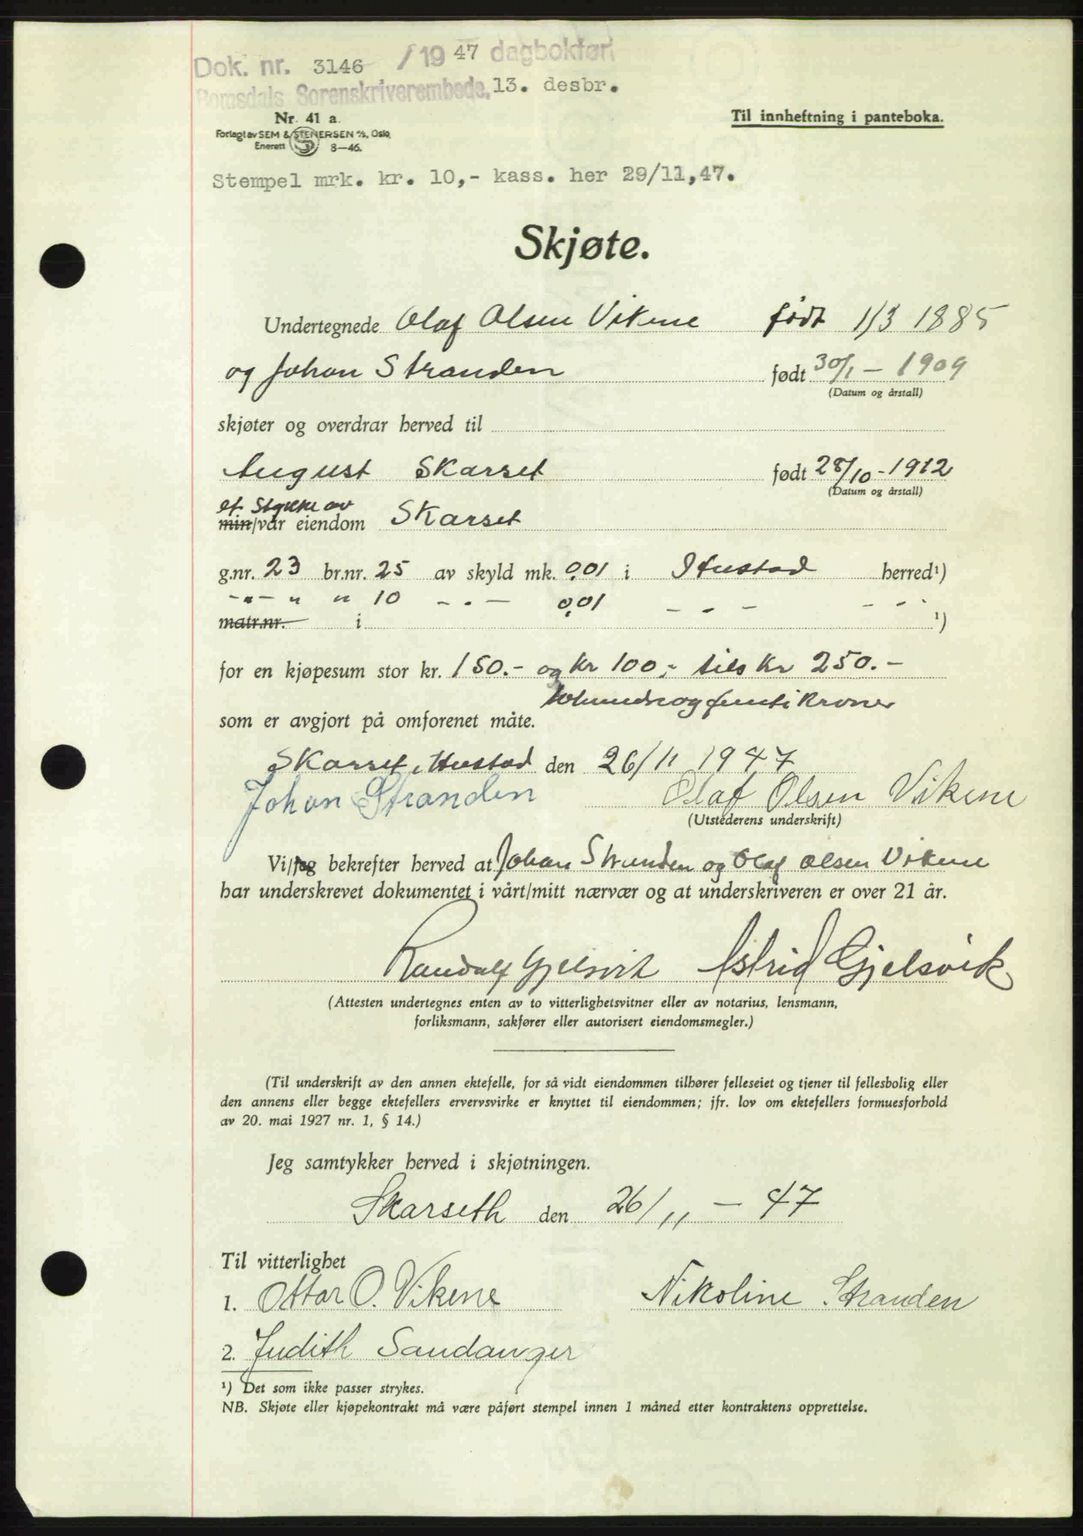 Dok. nr. 3146 / 19 47 dagbokført
Romsdals Sorenskriverembede, 13. desbr.
Nr. 41 a.
Forlagt av SEM & STENERSEN A/S, Oslo.
Enerett S 8—46.
Til innheftning i panteboka.
Stempel mrk. kr. 10,- kass. her 29/11,47.
Skjøte.
Undertegnede Olaf Olsen Vikene født 1/3 1885
og Johan Stranden født 30/1 — 1909
(Datum og årstall)
skjøter og overdrar herved til
August Skarset født 28/10-1912
(Datum og årstall)
et Stykke av
min/vår eiendom Skarset
g.nr. 23 br.nr. 25 av skyld mk. 0,01 i Hustad herred¹)
-"- " " 10 - - — 0,01 — - — - -
matr.nr. i ¹)
for en kjøpesum stor kr. 150.- og kr 100,- tils kr 250.-
tohundreogfemtikroner
som er avgjort på omforenet måte.
Skarset, Hustad den 26/11 1947
Johan Stranden Olaf Olsen Vikene
(Utstederens underskrift)
Vi/jeg bekrefter herved at Johan Stranden og Olaf Olsen Vikene
har underskrevet dokumentet i vårt/mitt nærvær og at underskriveren er over 21 år.
Randulf Gjelsvik Astrid Gjelsvik
(Attesten undertegnes enten av to vitterlighetsvitner eller av notarius, lensmann,
forliksmann, sakfører eller autorisert eiendomsmegler.)
(Til underskrift av den annen ektefelle, for så vidt eiendommen tilhører felleseiet og tjener til fellesbolig eller
den annens eller begge ektefellers ervervsvirke er knyttet til eiendommen; jfr. lov om ektefellers formuesforhold
av 20. mai 1927 nr. 1, § 14.)
Jeg samtykker herved i skjøtningen.
Skarseth den 26/11 — 47
Til vitterlighet
1. Ottar O. Vikene Nikoline Stranden
2. Judith Sandanger
¹) Det som ikke passer strykes.
NB. Skjøte eller kjøpekontrakt må være påført stempel innen 1 måned etter kontraktens opprettelse.